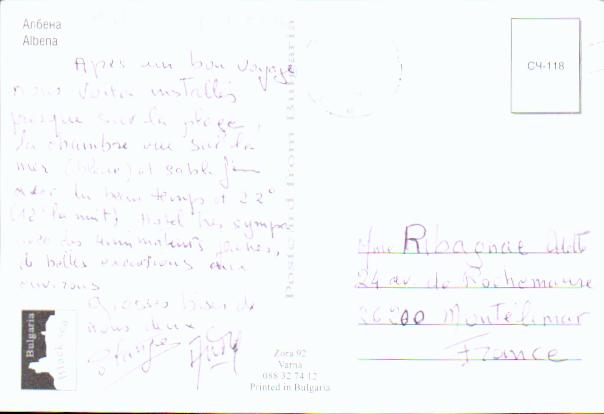 Албена
Albena
Après un bon voyage
nous voilà installés
presque sur la plage,
la chambre vue sur la
mer (bleue) et sable
beau temps et 22°
(12° la nuit). Hotel très sympa
avec des animateurs
de belles excursions aux
environs
Grosses bises de
nous deux
Postcard from Bulgaria
СЧ-118
Mme Ribagnac
24 av de Rochemaure
26200 Montélimar
France
Bulgaria
Black Sea
Zora 92
Varna
088 32 74 12
Printed in Bulgaria